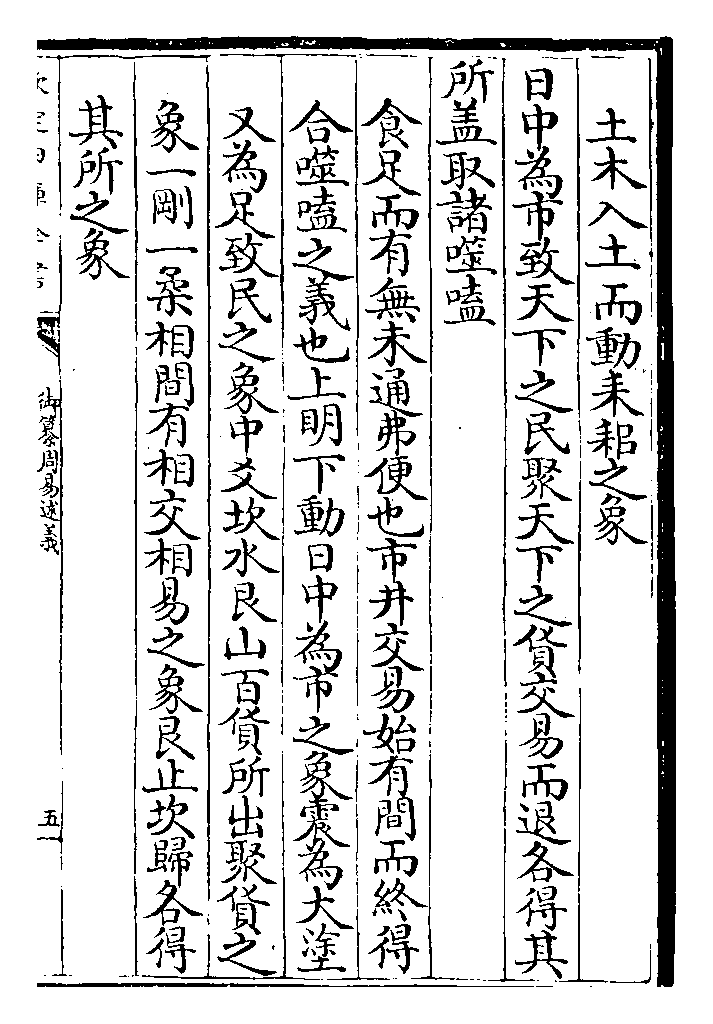 土木入土而動耒耜之象
日中為市致天下之民聚天下之貨交易而退各得其
所盖取諸噬嗑
食足而有無未通弗便也市井交易始有間而終得
合噬嗑之義也上明下動日中為市之象震為大塗
又為足致民之象中爻坎水艮山百貨所出聚貨之
象一剛一柔相間有相交相易之象艮止坎歸各得
其所之象
御纂周易述義
五